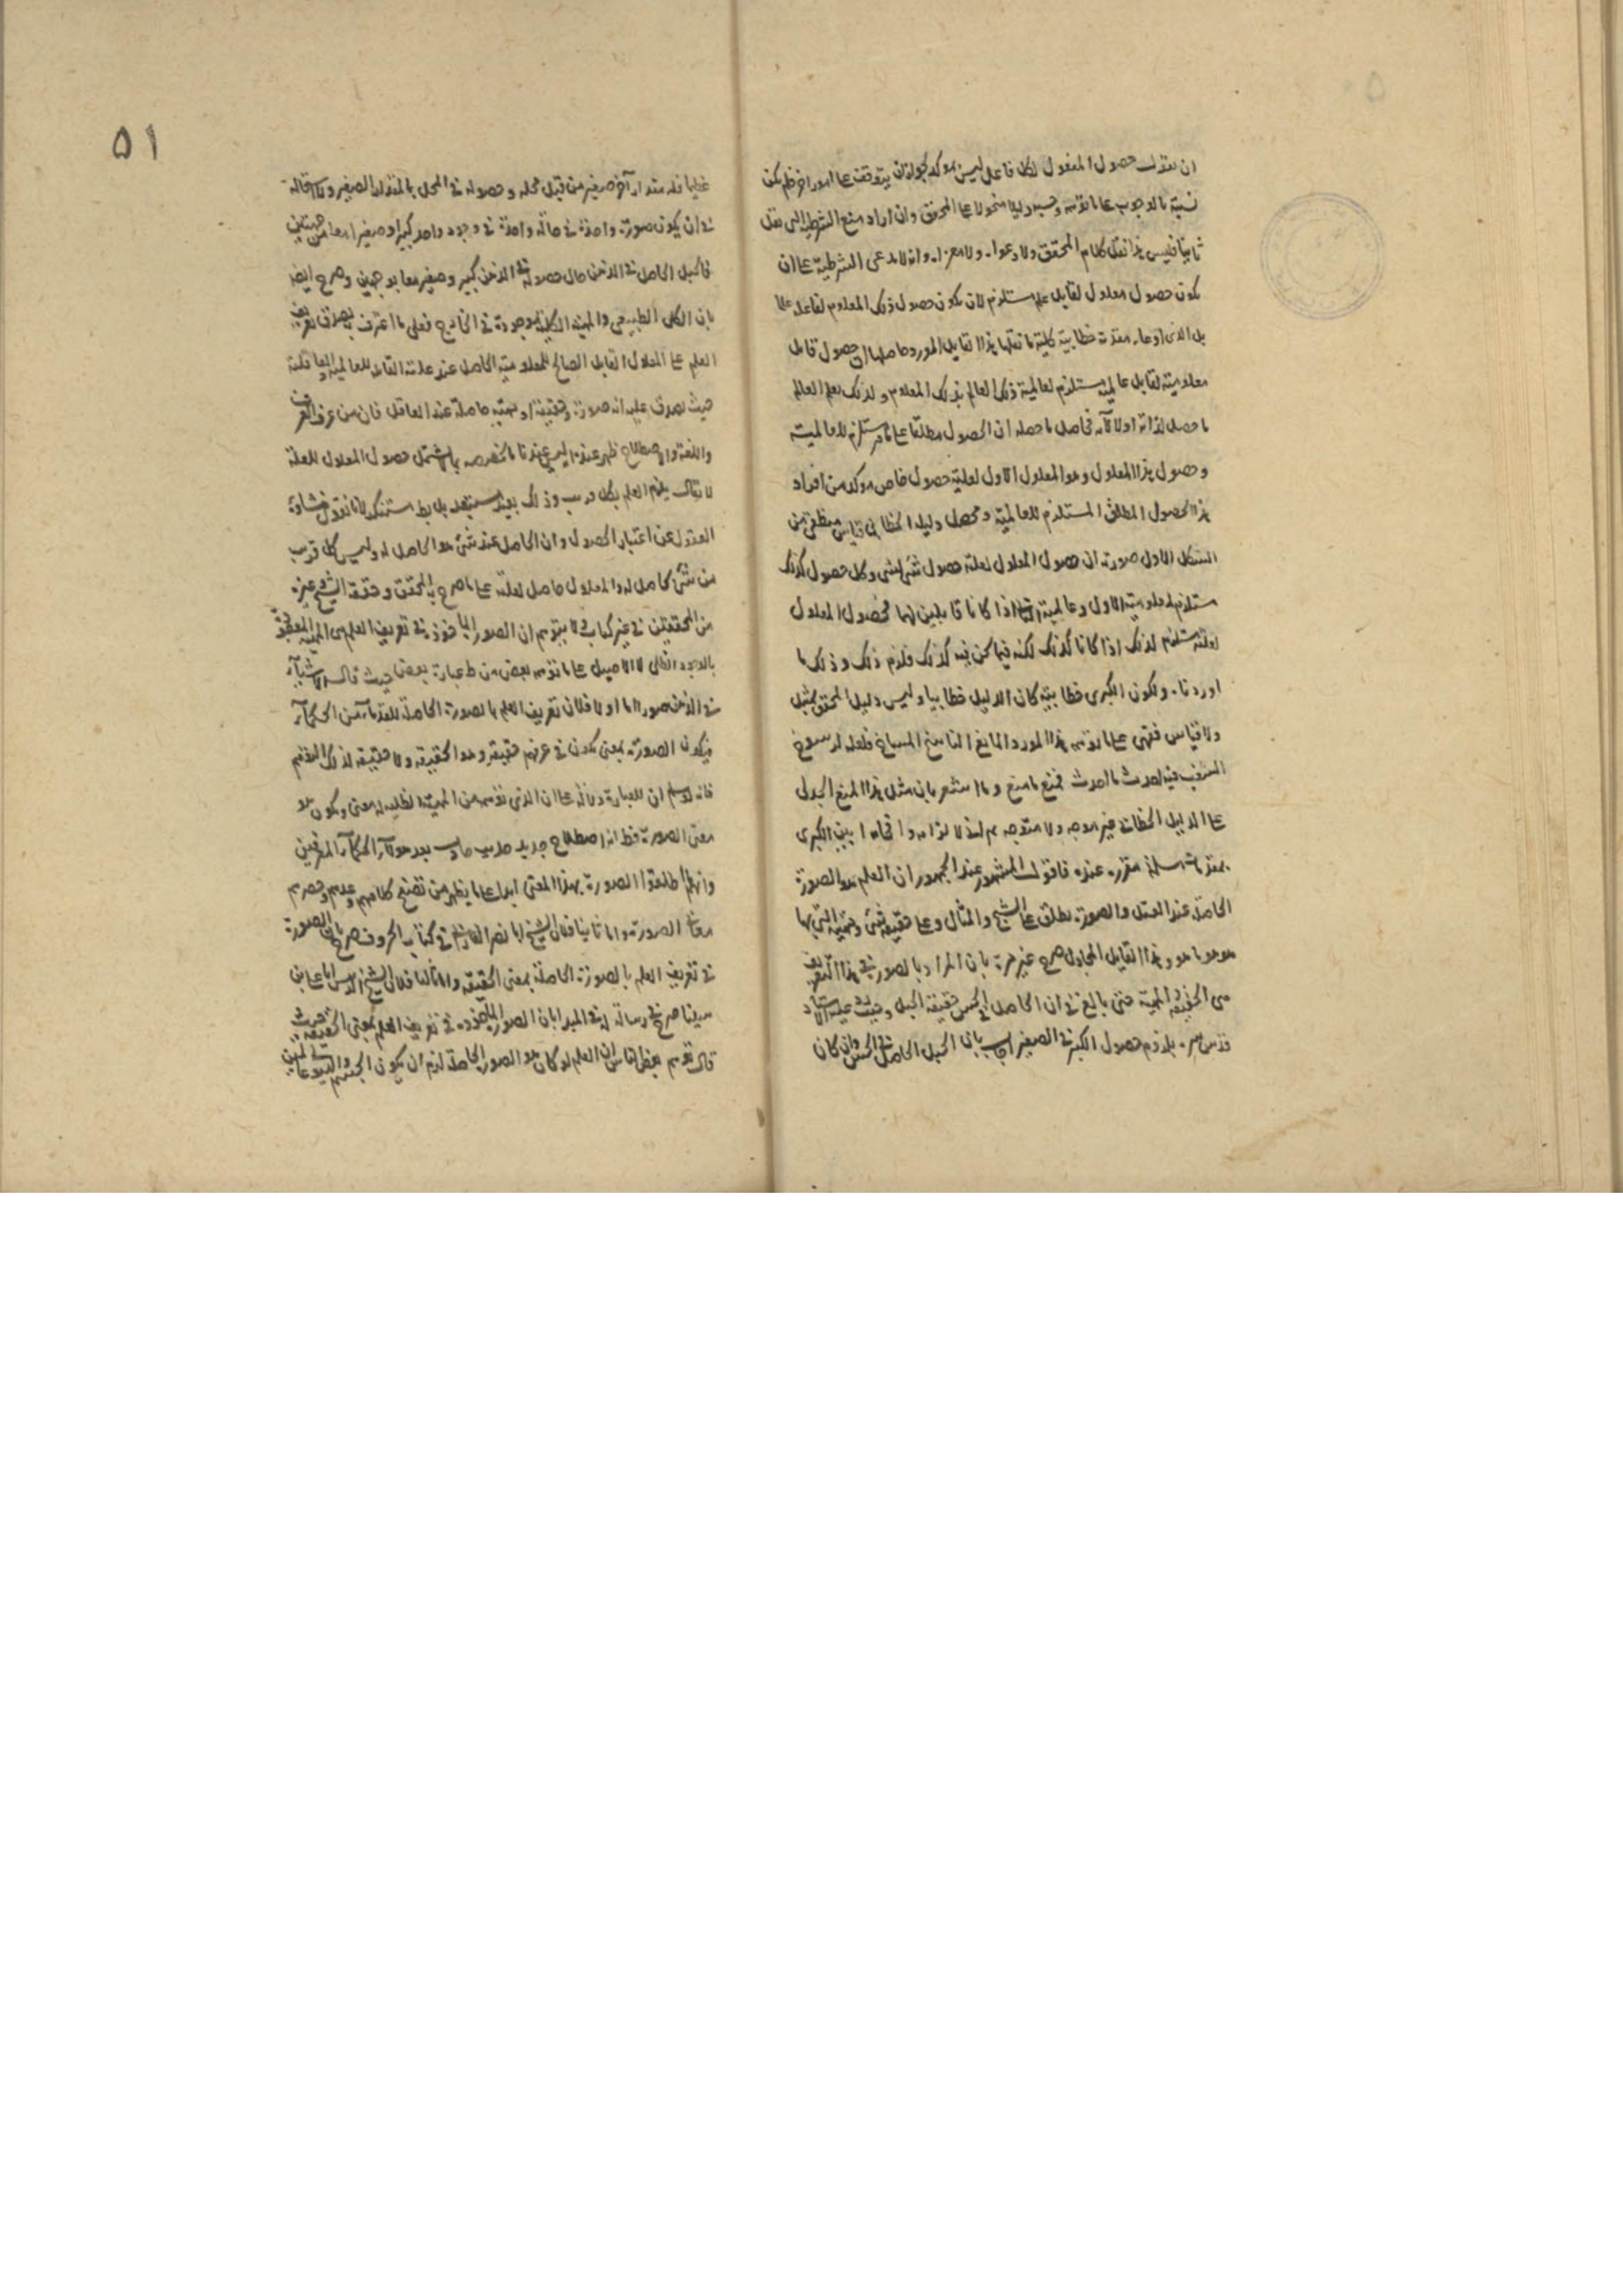 ان نقول حصول المفعول لكل فاعل ليس موكد لجواز ان يتوقف على امور اخر فلم يكن
نسبته بالوجوب على ما توهمه وحسبه دليلا منحولا على المحقق وان اراد منع الشرطية التي نقل
ثانيا فليس هذا نقل كلام المحقق ولا دعواه ولا معزاه وانه لا يدعى الشرطية على ان
يكون حصول معلول لقابل علم مستلزم لان يكون حصول ذلك المعلوم لفاعله علما
بل الذي ادعاه مقدمة خطابية كلية ما نقلها هذا القايل المورد حاصلها ان حصول قابل
معلومية لقابل عالمية مستلزم لعالمية ذلك العالم بذلك المعلوم ولذلك يعلم العالم
ما حصل لذاته او لآلاته فحاصل ما حصله ان الحصول مطلقا على ما قرر مستلزم للعالمية
وحصول هذا المعلول وهو المعلول الاول لعلته حصول خاص موكد من افراد
هذا الحصول المطلق المستلزم للعالمية ومحصل دليله الخطابي قياس منطقي من
الشكل الاول صورته ان حصول المعلول لعلته حصول شئ لشئ وكل حصول كذلك
مستلزم لمعلومية الاول وعالمية الثاني اذا كانا قابلين لهما فحصول المعلول
لعلته مستلزم لذلك اذا كانا كذلك لكنه فيما نحن فيه كذلك فلزم ذلك وذلك ما
اوردناه ولكون الكبرى خطابية كان الدليل خطابيا وليس دليل المحقق تمثيل
ولا قياس فقهى على ما توهمه هذا المورد المانع
الشغب فيه احدث ما احدث فمنع ما منع وما استشعر بان مثل هذا المنع الجدلى
على الدليل الخطابي غير موجه ولا متوجه
بمقدمات مسلمة مقررة عنده فاقول المشهور عند الجمهور ان العلم هو الصورة
الحاصلة عند العقل والصورة يطلق على الشبح والمثال وعلى حقيقة شئ ومهيته التي بها
هو هو ما هو وهذا القايل المجادل صرح غير مرة بان المراد بالصورة في هذا التعريف
هي الحقيقة والمهية حتى بالغ في ان الحاصل في الحس حقيقة الجبل وحيث اورد عليه الاستاد
قدس سره بلزوم حصول الكبير في الصغير اجاب بان الجبل الحاصل في الحس وان كان
عظيما فله مقدار آخر صغير من قبل محله وحصوله في المحل بالمقدار الصغير ولا استحالة
في ان يكون صورة واحدة في حالة واحدة في وجود واحد كبيرا وصغيرا معا من جهتين
فالجبل الحاصل في الذهن حال حصوله في الذهن كبير وصغير معا بوجهين وصرح ايضا
بان الكلى الطبيعى والمهية الكلية موجودة في الخارج فعلى ما اعترف به يصدق تعريف
العلم على المعلول القابل الصالح للمعلومية الحاصل عند علته القابلة للعالمية والعاقلية
حيث يصدق عليه انه صورة وحقيقة او مهية حاصلة عند العاقل فان من عرف العرف
واللغة والاصطلاح ظهر عنده
لا يقال يلزم العلم بكل قريب وذلك بعيد مستبعد بل مستنكر لانا نقول منشاؤه
العدول عن اعتبار الحصول وان الحاصل عند شئ هو الحاصل له وليس كل قريب
من شئ حاصل له والمعلول حاصل لعلته على ما صرح به المحقق وحققه الشيخ وغيره
من المحققين في غير كتاب ولا يتوهم ان الصورة الماخوذة في تعريف العلم هى المهية المتحققة
بالوجود الظلى لا الاصيل على ما توهمه بعض من ظ عبارة بعض حيث قال الاشياء
في الذهن صور اما اولا فلان تعريف العلم بالصورة الحاصلة للقدماء من الحكماء
فيكون الصورة بمعنى يكون في عرفهم حقيقة وهو الحقيقة ولا حقيقة لذلك التوهم
فانه لو سلم ان للعبارة دلالة على ان الذي توهمه من المهية الظلية له معنى ويكون هو
معنى الصورة فظ انه اصطلاح جديد حادث بعد هولاء الحكماء المعرفين
وانهم ما اطلقوا الصورة بهذا المعنى ابدا على ما يظهر من تصفح كلامهم وعدهم وحصرهم
معانى الصورة واما ثانيا فلان الشيخ ابا نصر الفارابى في كتاب الحروف صرح بان الصورة
في تعريف العلم بالصورة الحاصلة بمعنى الحقيقة واما ثالثا فلان الشيخ الرئيس ابا على ابن
سينا صرح في رسالة له في المبدا بان الصورة الماخوذة في تعريف العلم بمعنى الحقيقة حيث
قال توهم بعض الناس ان العلم لو كان هو الصورة الحاصلة لزم ان يكون الجسم
٥١